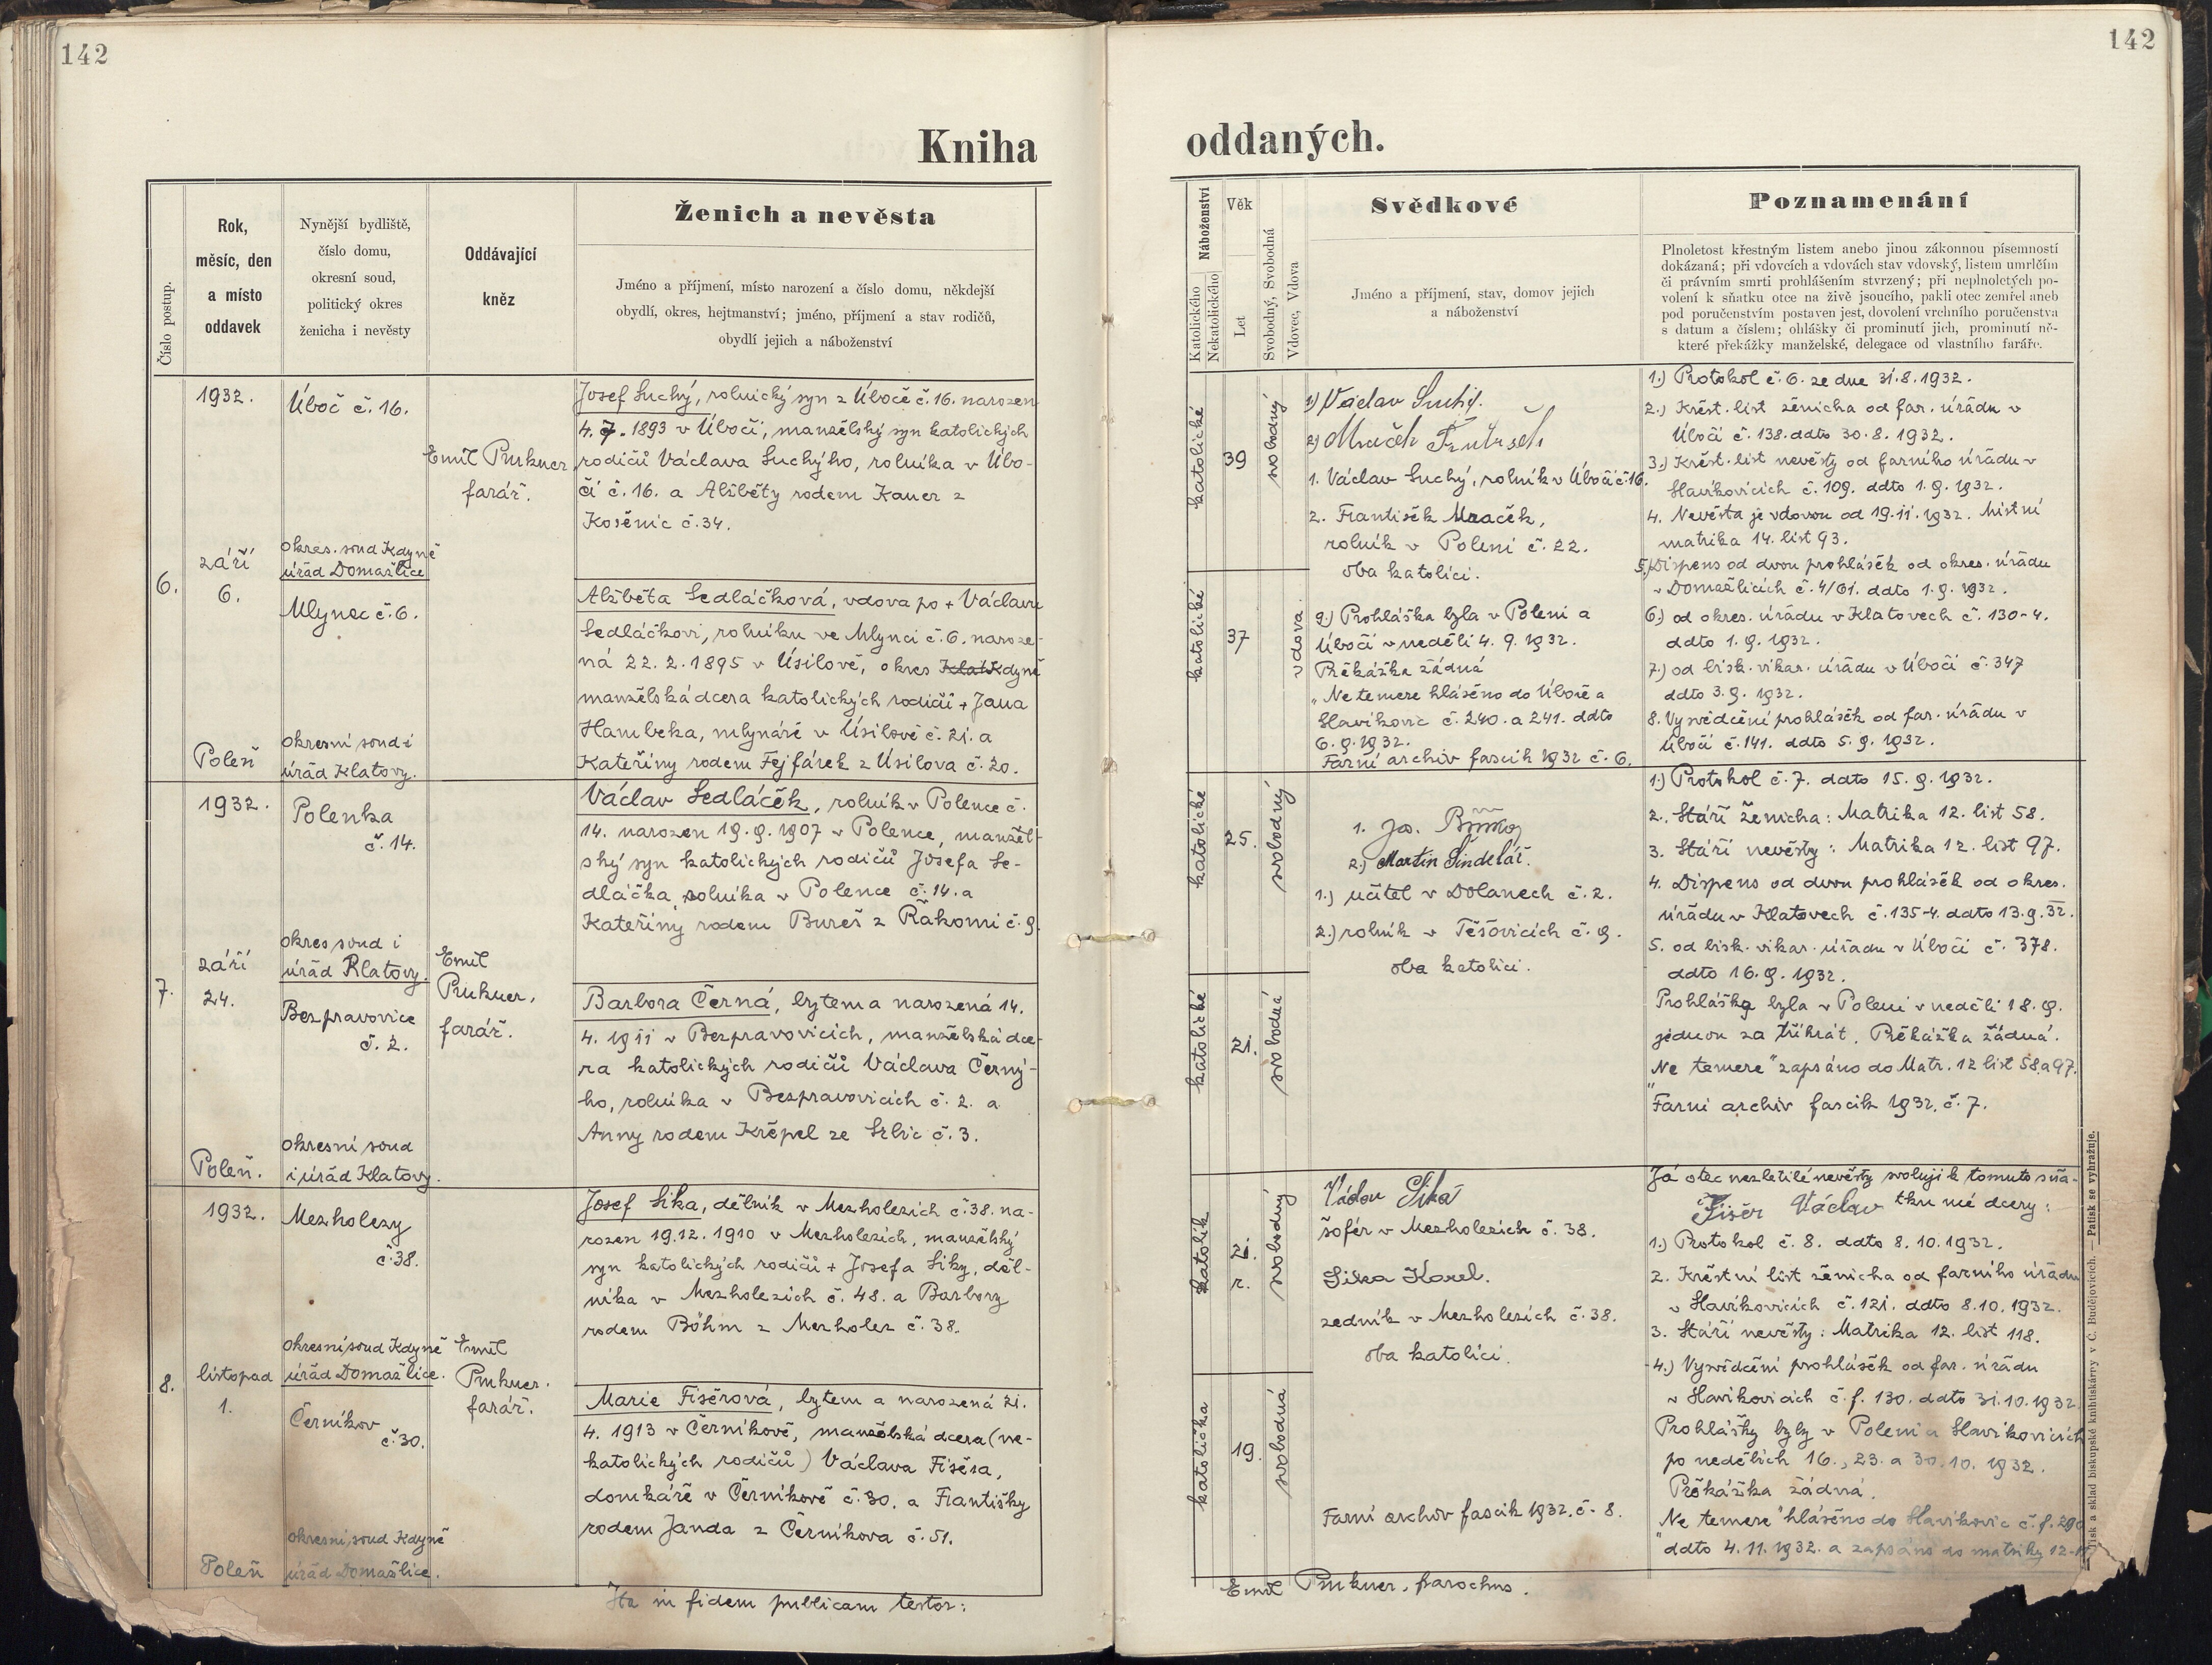 142
142
Kniha
oddaných.
Číslo postup.
Rok,
měsíc, den
a místo
oddavek
Nynější bydliště,
číslo domu,
okresní soud,
politický okres
ženicha i nevěsty
Oddávající
kněz
Ženich a nevěsta
Jméno a příjmení, místo narození a číslo domu, někdejší
obydlí, okres, hejtmanství; jméno, příjmení a stav rodičů,
obydlí jejich a náboženství
Náboženství
Katolického
Nekatolického
Věk
Let
Svobodný, Svobodná
Vdovec, Vdova
Svědkové
Jméno a příjmení, stav, domov jejich
a náboženství
Poznamenání
Plnoletost křestným listem anebo jinou zákonnou písemností
dokázaná; při vdovcích a vdovách stav vdovský, listem umrlčím
či právním smrti prohlášením stvrzený; při neplnoletých po-
volení k sňatku otce na živě jsoucího, pakli otec zemřel aneb
pod poručenstvím postaven jest, dovolení vrchního poručenstva
s datum a číslem; ohlášky či prominutí jich, prominutí ně-
které překážky manželské, delegace od vlastního faráře.
6.
1932.
září
6.
Poleň
Úboč č. 16.
okres. soud Kdyně
úřád Domažlice
Mlynec č. 6.
okresní soud i
úřád Klatovy.
Emil Purkner
farář.
Josef Suchý, rolnický syn z Úboče č. 16. narozen
4. 7. 1893 v Úboči, manželský syn katolických
rodičů Václava Suchýho, rolníka v Úbo-
či č. 16. a Alžběty rodem Kauer z
Kosěnic č. 34.
Alžběta Sedláčková, vdova po + Václavu
Sedláčkovi, rolníku ve Mlynci č. 6. naroze-
ná 22. 2. 1895 v Úsilově, okres Klat Kdyně
manželská dcera katolických rodičů + Jana
Hambeka, mlynáře v Úsilově č. 21. a
Kateřiny rodem Fejfárek z Úsilova č. 20.
katolické
39
svobodný
katolické
37
vdova
1) Václav Suchý.
2)
1. Václav Suchý, rolník v Úboči č. 16.
2. František Mraček,
rolník v Poleni č. 22.
oba katolíci.
9.) Prohláška byla v Poleni a
Úboči v neděli 4. 9. 1932.
Překážka žádná
„Ne temere hlášeno do Úboče a
Slavíkovic č. 240. a 241. ddto
6. 9. 1932.
Farní archiv fascik 1932 č. 6.
1.) Protokol č. 6. ze dne 31. 8. 1932.
2.) Křest. list ženicha od far. úřádu v
Úboči č. 138. ddto 30. 8. 1932.
3.) Křest. list nevěsty od farního úřádu v
Slavíkovicích č. 109. ddto 1. 9. 1932.
4. Nevěsta je vdovou od 19. 11. 1932. Místní
matrika 14. list 93.
5.) Dispens od dvou prohlášek od okres. úřádu
v Domažlicích č. 4/61. ddto 1. 9. 1932.
6.) od okres. úřádu v Klatovech č. 130-4.
ddto 1. 9. 1932.
7.) od bisk. vikar. úřádu v Úboči č. 347
ddto 3. 9. 1932.
8. Vysvědčení prohlášek od far. úřádu v
Úboči č. 141. ddto 5. 9. 1932.
7.
1932.
září
24.
Poleň.
Polenka
č. 14.
okres soud i
úřád Klatovy.
Bezpravovice
č. 2.
okresní soud
i úřád Klatovy.
Emil
Purkner,
farář.
Václav Sedláček, rolník v Polence č.
14. narozen 19. 9. 1907 v Polence, manžel-
ský syn katolických rodičů Josefa Se-
dláčka, rolníka v Polence č. 14. a
Kateřiny rodem Bureš z Řakomi č. 9.
Barbora Černá, bytem a narozená 14.
4. 1911 v Bezpravovicích, manželská dce-
ra katolických rodičů Václava Černý-
ho, rolníka v Bezpravovicích č. 2. a
Anny rodem Křepel ze Srbic č. 3.
katolické
25.
svobodný
katolické
21.
svobodná
1. Jos.
2.) Martin Šindelář.
1.) učitel v Dolanech č. 2.
2.) rolník v Těšovicích č. 9.
oba katolíci.
1.) Protokol č. 7. ddto 15. 9. 1932.
2. Stáří ženicha: Matrika 12. list 58.
3. Stáří nevěsty: Matrika 12. list 97.
4. Dispens od dvou prohlášek od okres.
úřádu v Klatovech č. 135-4. ddto 13. 9. 32.
5. od bisk. vikar. úřadu v Úboči č. 378.
ddto 16. 9. 1932.
Prohláška byla v Poleni v neděli 18. 9.
jednou za třikrát. Překážka žádná.
„Ne temere“ zapsáno do Matr. 12 list 58. a 97.
Farní archiv fascik 1932. č. 7.
8.
1932.
listopad
1.
Poleň
Mezholezy
č. 38.
okresní soud Kdyně
úřád Domažlice.
Černíkov
č. 30.
okresní soud Kdyně
úřád Domažlice.
Emil
Purkner.
farář.
Josef Sika, dělník v Mezholezích č. 38. na-
rozen 19. 12. 1910 v Mezholezích, manželský
syn katolických rodičů + Josefa Siky, děl-
níka v Mezholezích č. 48. a Barbory
rodem Böhm z Mezholez č. 38.
Marie Fišerová, bytem a narozená 21.
4. 1913 v Černíkově, manželská dcera (ne-
katolických rodičů) Václava Fišera,
domkáře v Černíkově č. 30. a Františky
rodem Janda z Černíkova č. 51.
katolík
21.
r.
svobodný
katolička
19.
svobodná
Václav Sika
šofér v Mezholezích č. 38.
Sika Karel.
zedník v Mezholezích č. 38.
oba katolíci.
Farní archiv fascik 1932. č. 8.
Já otec nezletilé nevěsty svoluji k tomuto sňa-
Fišer Václav tku mé dcery:
1.) Protokol č. 8. ddto 8. 10. 1932.
2. Křestní list ženicha od farního úřádu
v Slavíkovicích č. 121. ddto 8. 10. 1932.
3. Stáří nevěsty: Matrika 12. list 118.
4.) Vysvědčení prohlášek od far. úřádu
v Slavíkovicích č. j. 130. ddto 31. 10. 1932.
Prohlášky byly v Poleni a Slavíkovicích
po nedělích 16., 23. a 30. 10. 1932.
Překážka žádná.
„Ne temere“ hlášeno do Slavíkovic č. j. 290
ddto 4. 11. 1932. a zapsáno do matriky 12-
Ita in fidem publicam testor:
Emil Purkner, parochus.
Tisk a sklad biskupské knihtiskárny v Č. Budějovicích. — Patisk se vyhražuje.